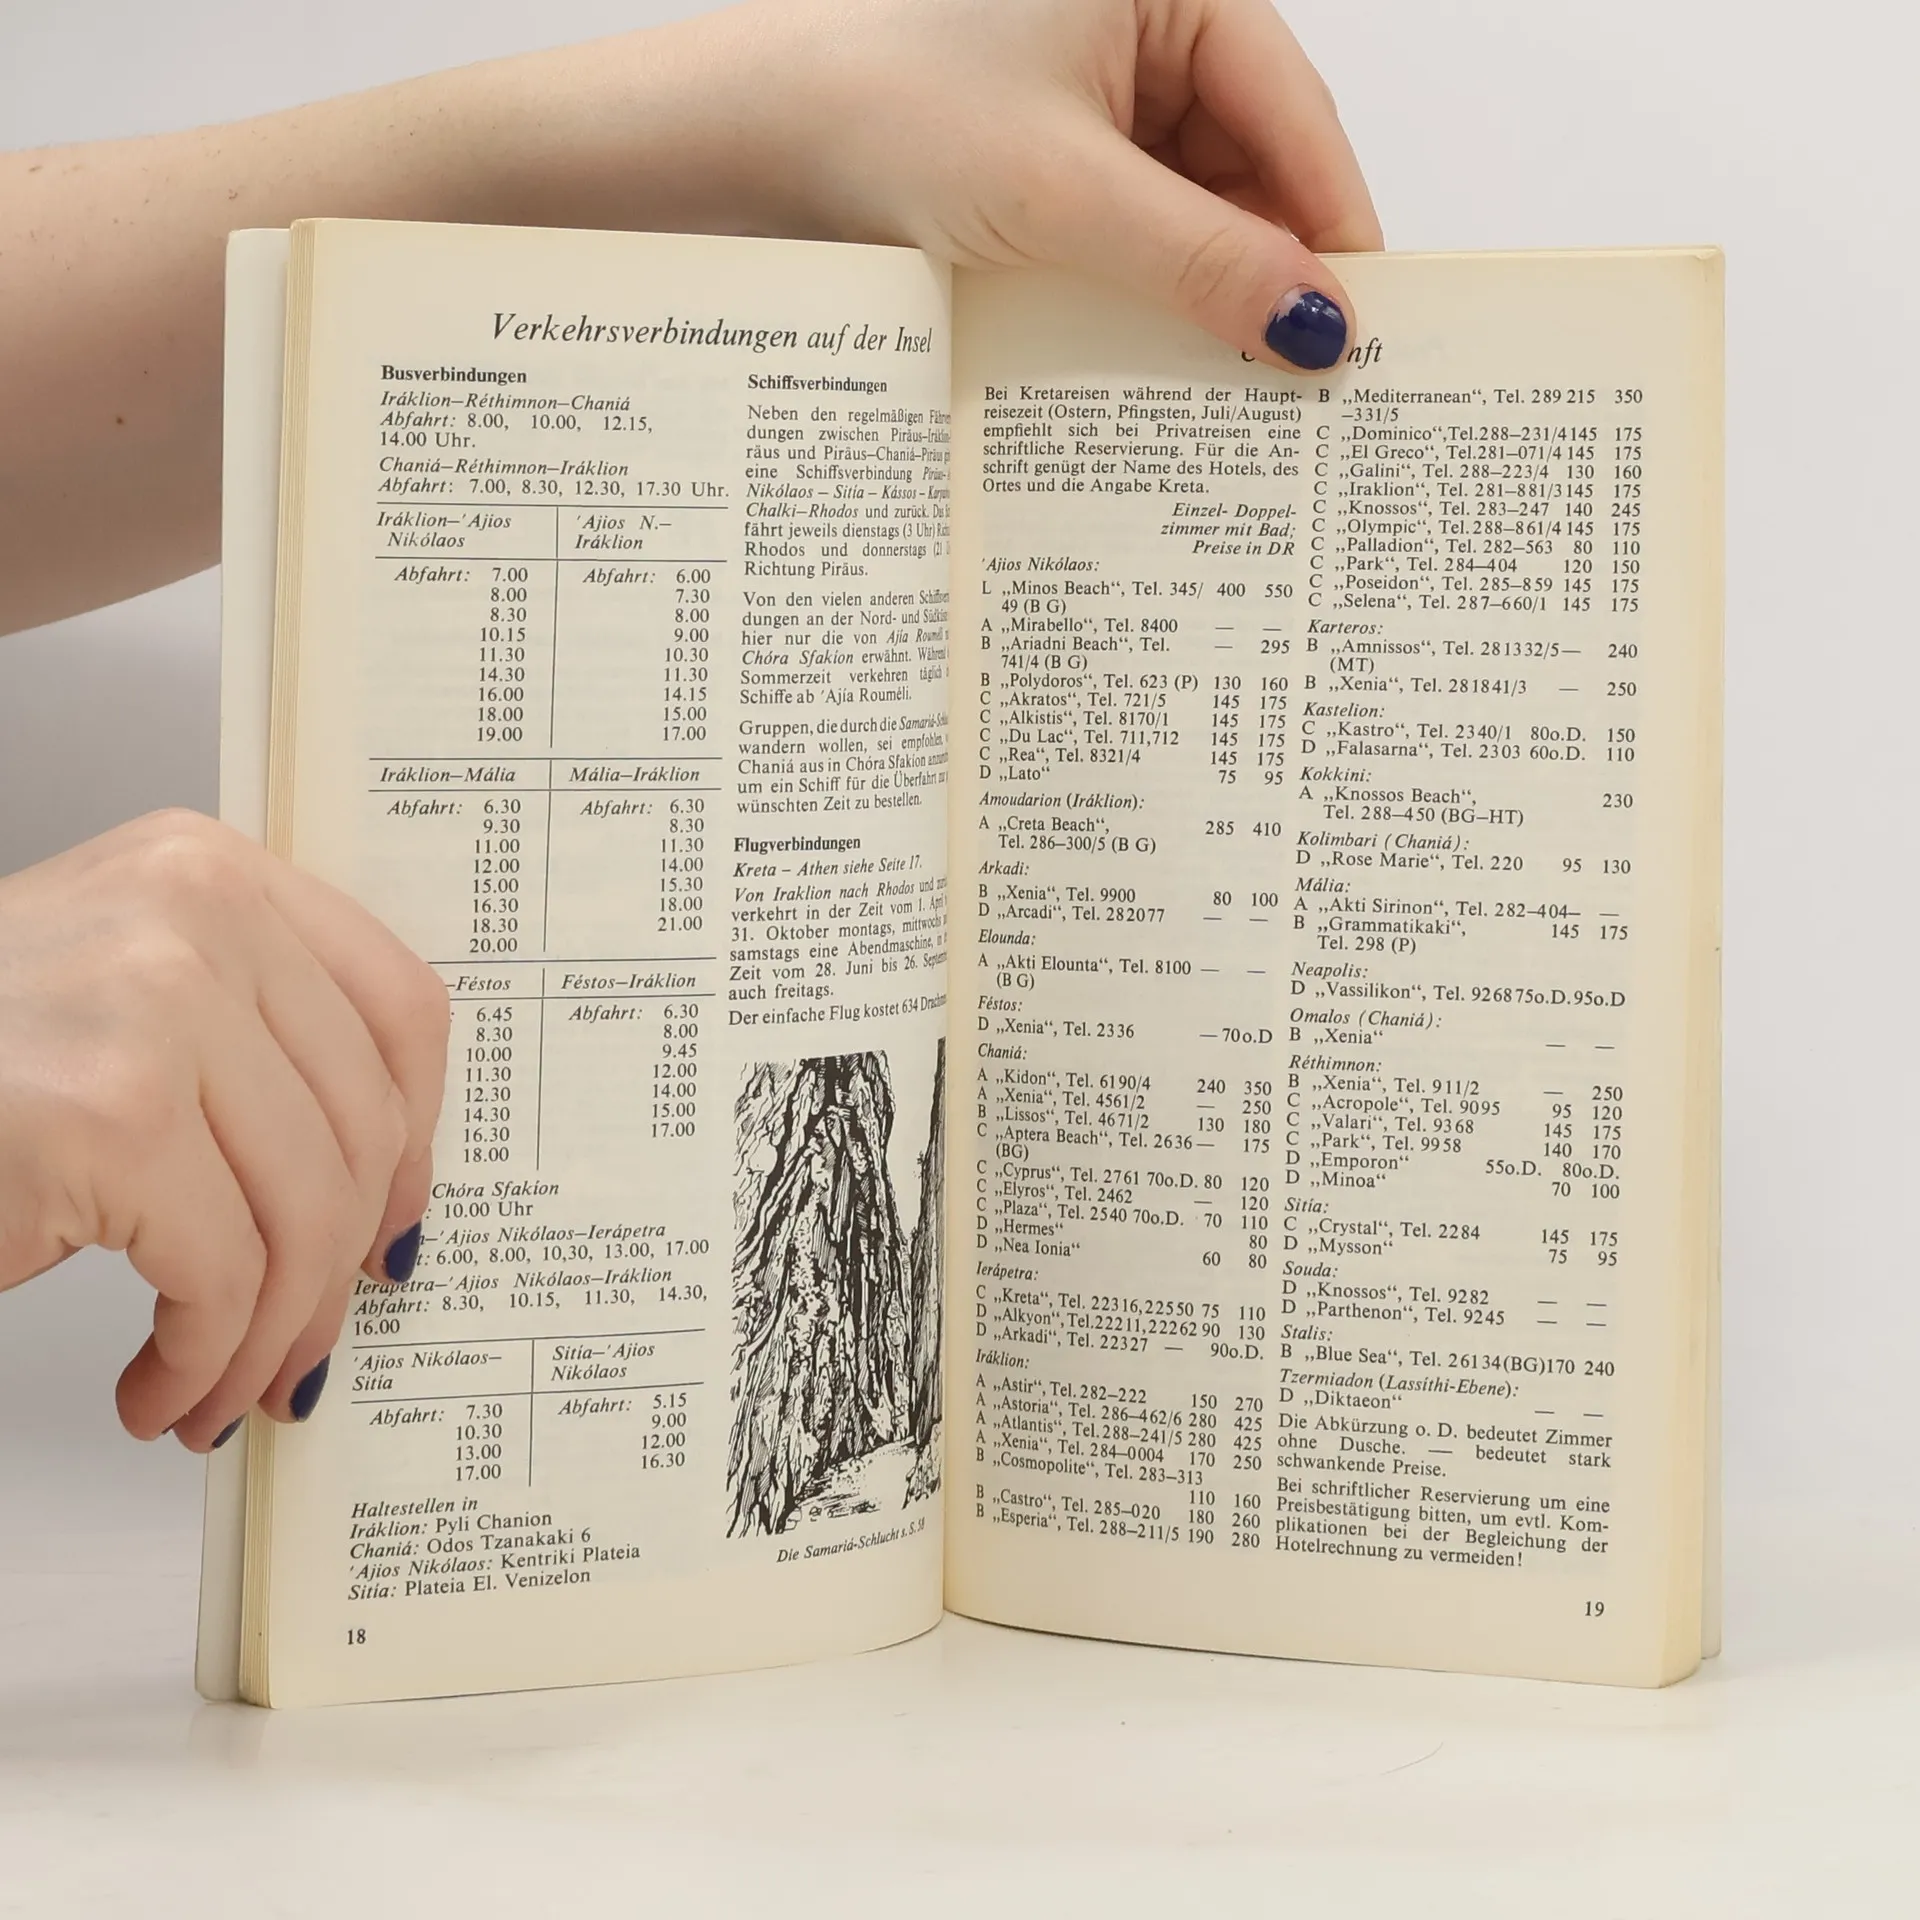 Verkehrsverbindungen auf der Insel
Busverbindungen
Iráklion–Réthimnon–Chaniá
Abfahrt: 8.00, 10.00, 12.15,
14.00 Uhr.
Chaniá–Réthimnon–Iráklion
Abfahrt: 7.00, 8.30, 12.30, 17.30 Uhr.
Iráklion–'Ajios 'Ajios N.–
Nikólaos Iráklion
Abfahrt: 7.00 Abfahrt: 6.00
8.00 7.30
8.30 8.00
10.15 9.00
11.30 10.30
14.30 11.30
16.00 14.15
18.00 15.00
19.00 17.00
Iráklion–Mália Mália–Iráklion
Abfahrt: 6.30 Abfahrt: 6.30
9.30 8.30
11.00 11.30
12.00 14.00
15.00 15.30
16.30 18.00
18.30 21.00
20.00
–Féstos Féstos–Iráklion
: 6.45 Abfahrt: 6.30
8.30 8.00
10.00 9.45
11.30 12.00
12.30 14.00
14.30 15.00
16.30 17.00
18.00
Chóra Sfakion
: 10.00 Uhr
–'Ajios Nikólaos–Ierápetra
: 6.00, 8.00, 10,30, 13.00, 17.00
Ierápetra–'Ajios Nikólaos–Iráklion
Abfahrt: 8.30, 10.15, 11.30, 14.30,
16.00
'Ajios Nikólaos– Sitía–'Ajios
Sitía Nikólaos
Abfahrt: 7.30 Abfahrt: 5.15
10.30 9.00
13.00 12.00
17.00 16.30
Haltestellen in
Iráklion: Pyli Chanion
Chaniá: Odos Tzanakaki 6
'Ajios Nikólaos: Kentriki Plateia
Sitía: Plateia El. Venizelon
18
Schiffsverbindungen
Neben den regelmäßigen
dungen zwischen
räus und Piräus–Chaniá–Piräus
eine Schiffsverbindung
Nikólaos – Sitía – Kássos –
Chalki–Rhodos und zurück. Das
fährt jeweils dienstags (3 Uhr)
Rhodos und donnerstags (21
Richtung Piräus.
Von den vielen anderen
dungen an der Nord- und
hier nur die von Ajía Rouméli
Chóra Sfakion erwähnt. Während
Sommerzeit verkehren täglich
Schiffe ab 'Ajía Rouméli.
Gruppen, die durch die
wandern wollen, sei empfohlen,
Chaniá aus in Chóra Sfakion
um ein Schiff für die Überfahrt
wünschten Zeit zu bestellen.
Flugverbindungen
Kreta – Athen siehe Seite 17.
Von Iraklion nach Rhodos und
verkehrt in der Zeit vom 1. April
31. Oktober montags, mittwochs
samstags eine Abendmaschine,
Zeit vom 28. Juni bis 26.
auch freitags.
Der einfache Flug kostet 634
Die Samariá-Schlucht s. S. 58
nft
Bei Kretareisen während der Haupt-
reisezeit (Ostern, Pfingsten, Juli/August)
empfiehlt sich bei Privatreisen eine
schriftliche Reservierung. Für die An-
schrift genügt der Name des Hotels, des
Ortes und die Angabe Kreta.
Einzel- Doppel-
zimmer mit Bad;
Preise in DR
'Ajios Nikólaos:
L „Minos Beach“, Tel. 345/ 400 550
49 (B G)
A „Mirabello“, Tel. 8400 — —
B „Ariadni Beach“, Tel. — 295
741/4 (B G)
B „Polydoros“, Tel. 623 (P) 130 160
C „Akratos“, Tel. 721/5 145 175
C „Alkistis“, Tel. 8170/1 145 175
C „Du Lac“, Tel. 711,712 145 175
C „Rea“, Tel. 8321/4 145 175
D „Lato“ 75 95
Amoudarion (Iráklion):
A „Creta Beach“, 285 410
Tel. 286–300/5 (B G)
Arkadi:
B „Xenia“, Tel. 9900 80 100
D „Arcadi“, Tel. 282077 — —
Elounda:
A „Akti Elounta“, Tel. 8100 — —
(B G)
Féstos:
D „Xenia“, Tel. 2336 — 70o.D
Chaniá:
A „Kidon“, Tel. 6190/4 240 350
A „Xenia“, Tel. 4561/2 — 250
B „Lissos“, Tel. 4671/2 130 180
C „Aptera Beach“, Tel. 2636 — 175
(BG)
C „Cyprus“, Tel. 2761 70o.D. 80 120
C „Elyros“, Tel. 2462 — 120
C „Plaza“, Tel. 2540 70o.D. 70 110
D „Hermes“ 80
D „Nea Ionia“ 60 80
Ierápetra:
C „Kreta“, Tel. 22316,22550 75 110
D „Alkyon“, Tel.22211,22262 90 130
D „Arkadi“, Tel. 22327 — 90o.D.
Iráklion:
A „Astir“, Tel. 282–222 150 270
A „Astoria“, Tel. 286–462/6 280 425
A „Atlantis“, Tel.288–241/5 280 425
A „Xenia“, Tel. 284–0004 170 250
B „Cosmopolite“, Tel. 283–313
110 160
B „Castro“, Tel. 285–020 180 260
B „Esperia“, Tel. 288–211/5 190 280
B „Mediterranean“, Tel. 289 215 350
–331/5
C „Dominico“,Tel.288–231/4 145 175
C „El Greco“, Tel.281–071/4 145 175
C „Galini“, Tel. 288–223/4 130 160
C „Iraklion“, Tel. 281–881/3 145 175
C „Knossos“, Tel. 283–247 140 245
C „Olympic“, Tel.288–861/4 145 175
C „Palladion“, Tel. 282–563 80 110
C „Park“, Tel. 284–404 120 150
C „Poseidon“, Tel. 285–859 145 175
C „Selena“, Tel. 287–660/1 145 175
Karteros:
B „Amnissos“, Tel. 281332/5 — 240
(MT)
B „Xenia“, Tel. 281841/3 — 250
Kastelion:
C „Kastro“, Tel. 2340/1 80o.D. 150
D „Falasarna“, Tel. 2303 60o.D. 110
Kokkini:
A „Knossos Beach“, 230
Tel. 288–450 (BG–HT)
Kolimbari (Chaniá):
D „Rose Marie“, Tel. 220 95 130
Mália:
A „Akti Sirinon“, Tel. 282–404– —
B „Grammatikaki“, 145 175
Tel. 298 (P)
Neapolis:
D „Vassilikon“, Tel. 926875o.D.95o.D
Omalos (Chaniá):
B „Xenia“ — —
Réthimnon:
B „Xenia“, Tel. 911/2 — 250
C „Acropole“, Tel. 9095 95 120
C „Valari“, Tel. 9368 145 175
C „Park“, Tel. 9958 140 170
D „Emporon“ 55o.D. 80o.D.
D „Minoa“ 70 100
Sitía:
C „Crystal“, Tel. 2284 145 175
D „Mysson“ 75 95
Souda:
D „Knossos“, Tel. 9282 — —
D „Parthenon“, Tel. 9245 — —
Stalis:
B „Blue Sea“, Tel. 26134(BG)170 240
Tzermiadon (Lassíthi-Ebene):
D „Diktaeon“ — —
Die Abkürzung o. D. bedeutet Zimmer
ohne Dusche. — bedeutet stark
schwankende Preise.
Bei schriftlicher Reservierung um eine
Preisbestätigung bitten, um evtl. Kom-
plikationen bei der Begleichung der
Hotelrechnung zu vermeiden!
19